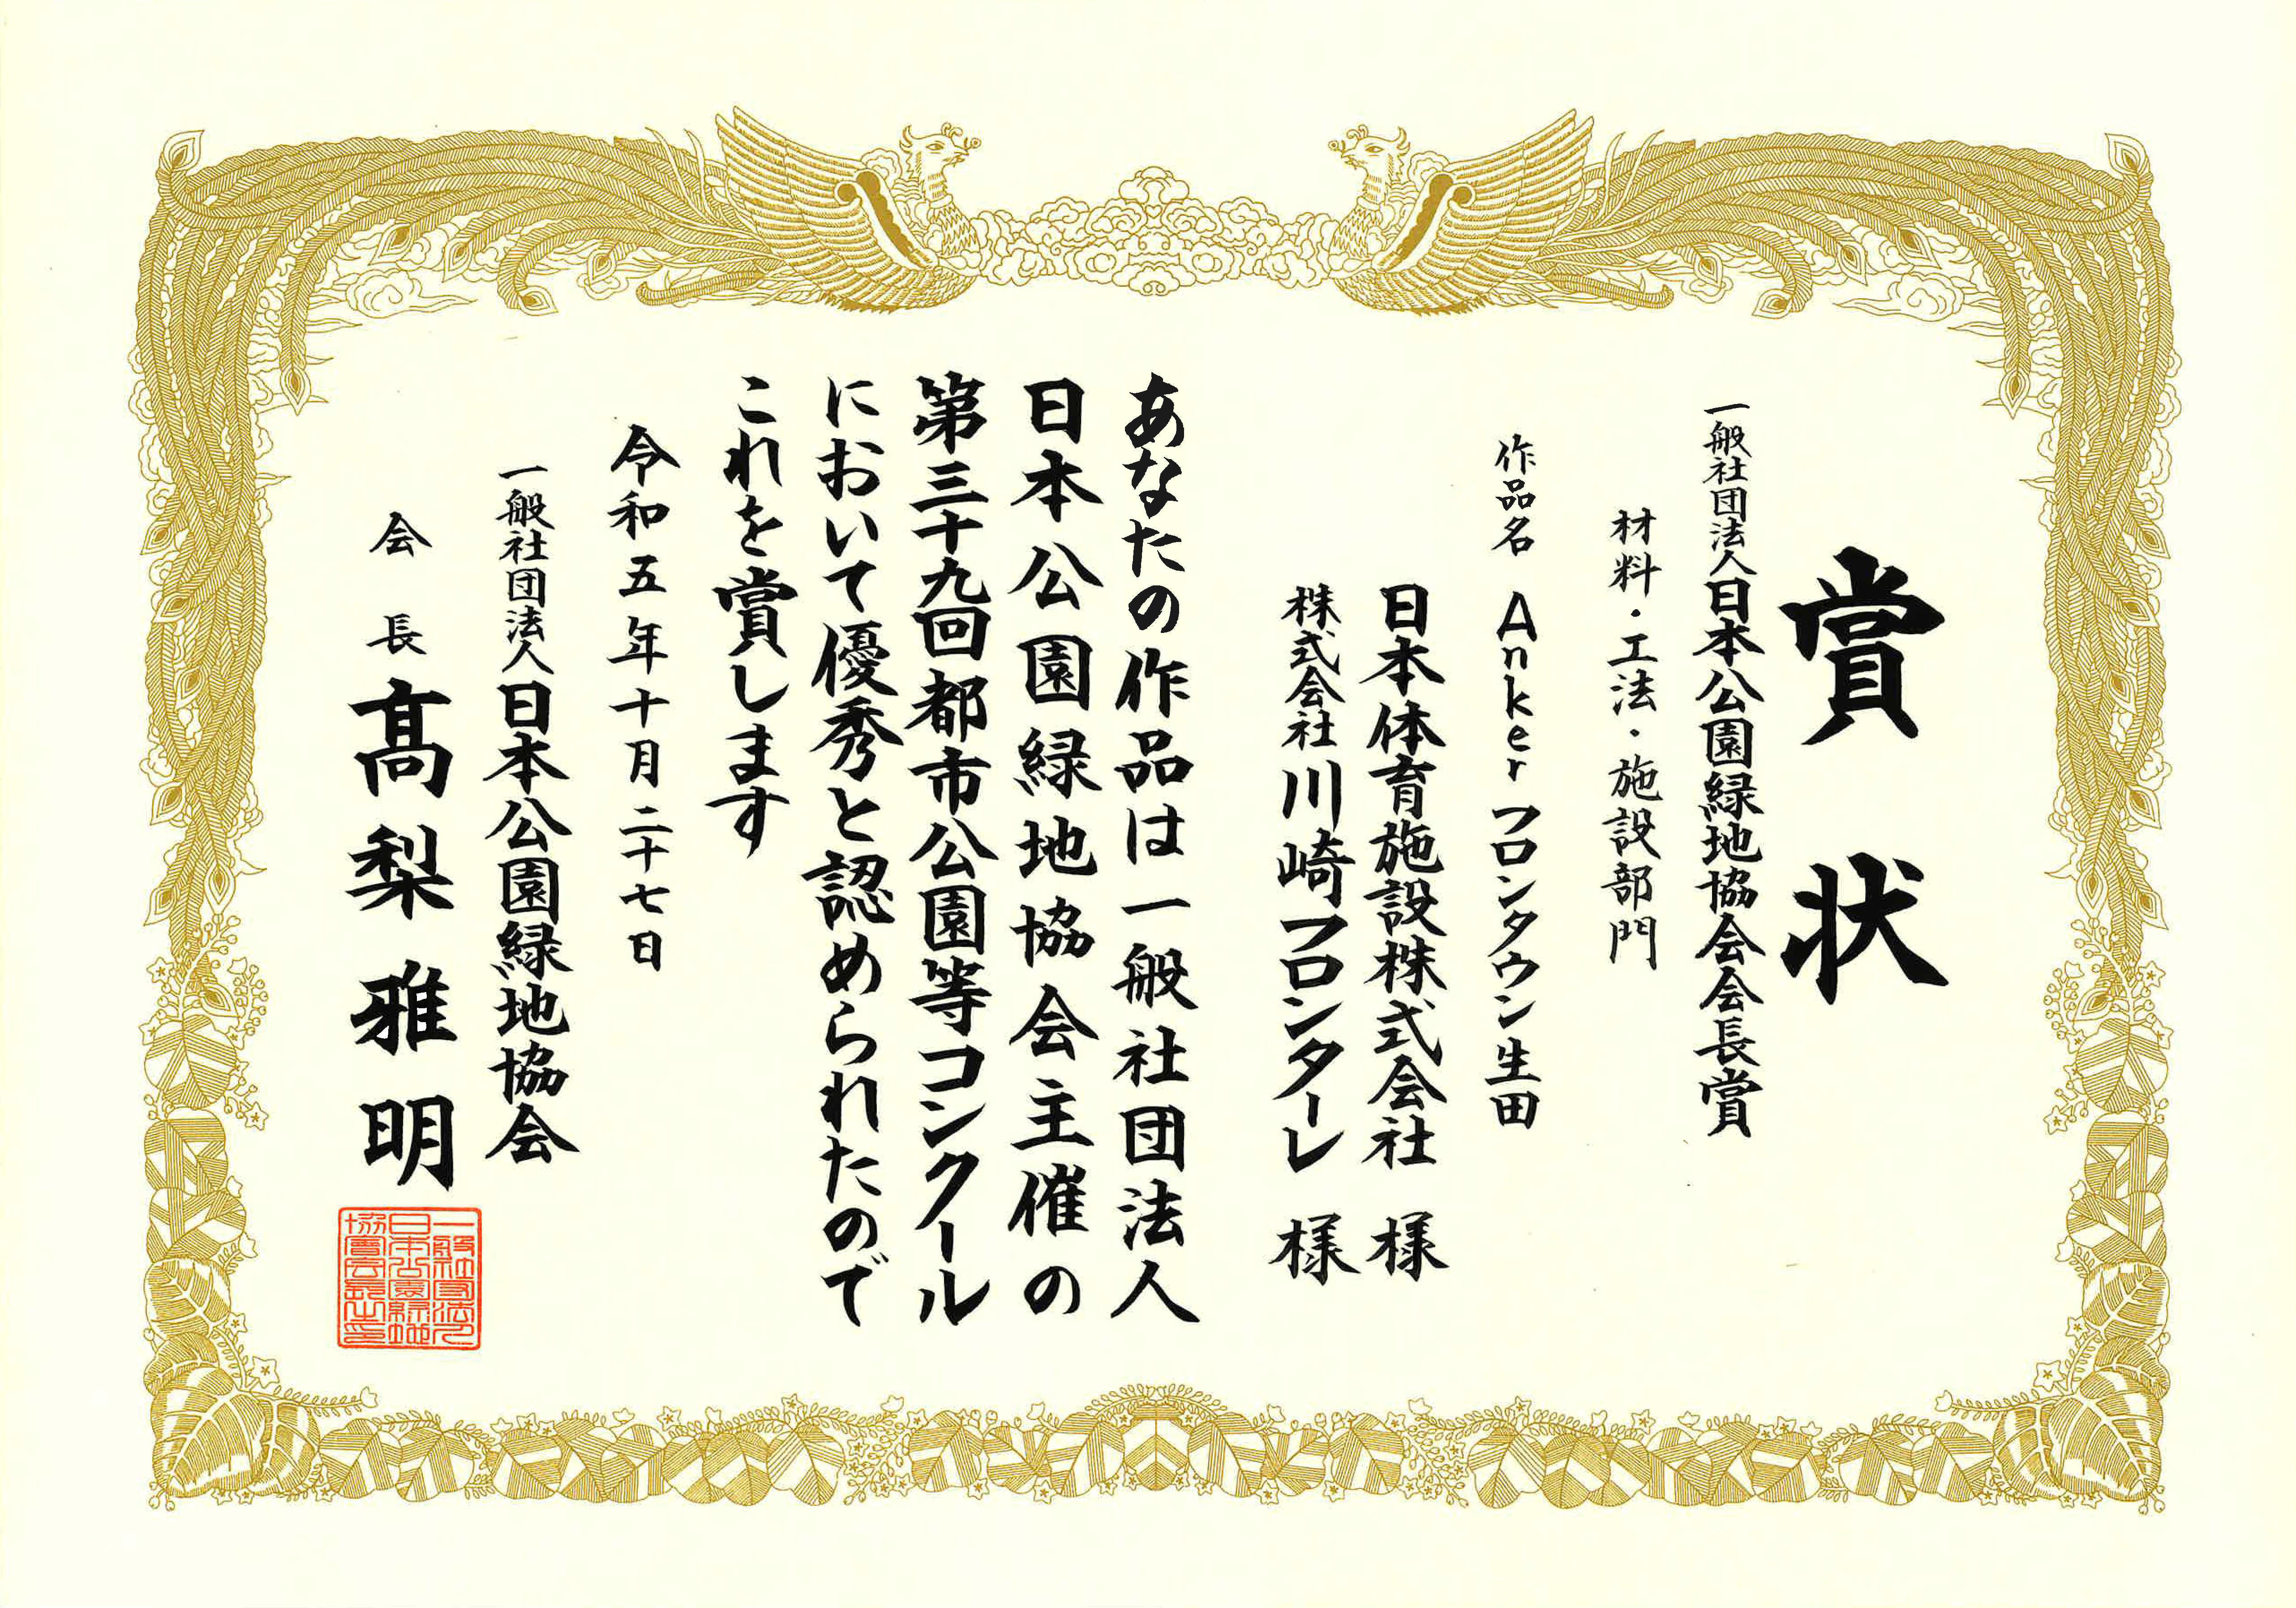 賞状
一般社団法人日本公園緑地協会会長賞
材料・工法・施設部門
作品名 Ankerフロンタウン生田
日本体育施設株式会社 様
株式会社川崎フロンターレ 様
あなたの作品は一般社団法人
日本公園緑地協会主催の
第三十九回都市公園等コンクール
において優秀と認められたので
これを賞します
令和五年十月二十七日
一般社団法人日本公園緑地協会
会長 髙梨雅明
一般社団法人
日本公園緑地
協會会長之印